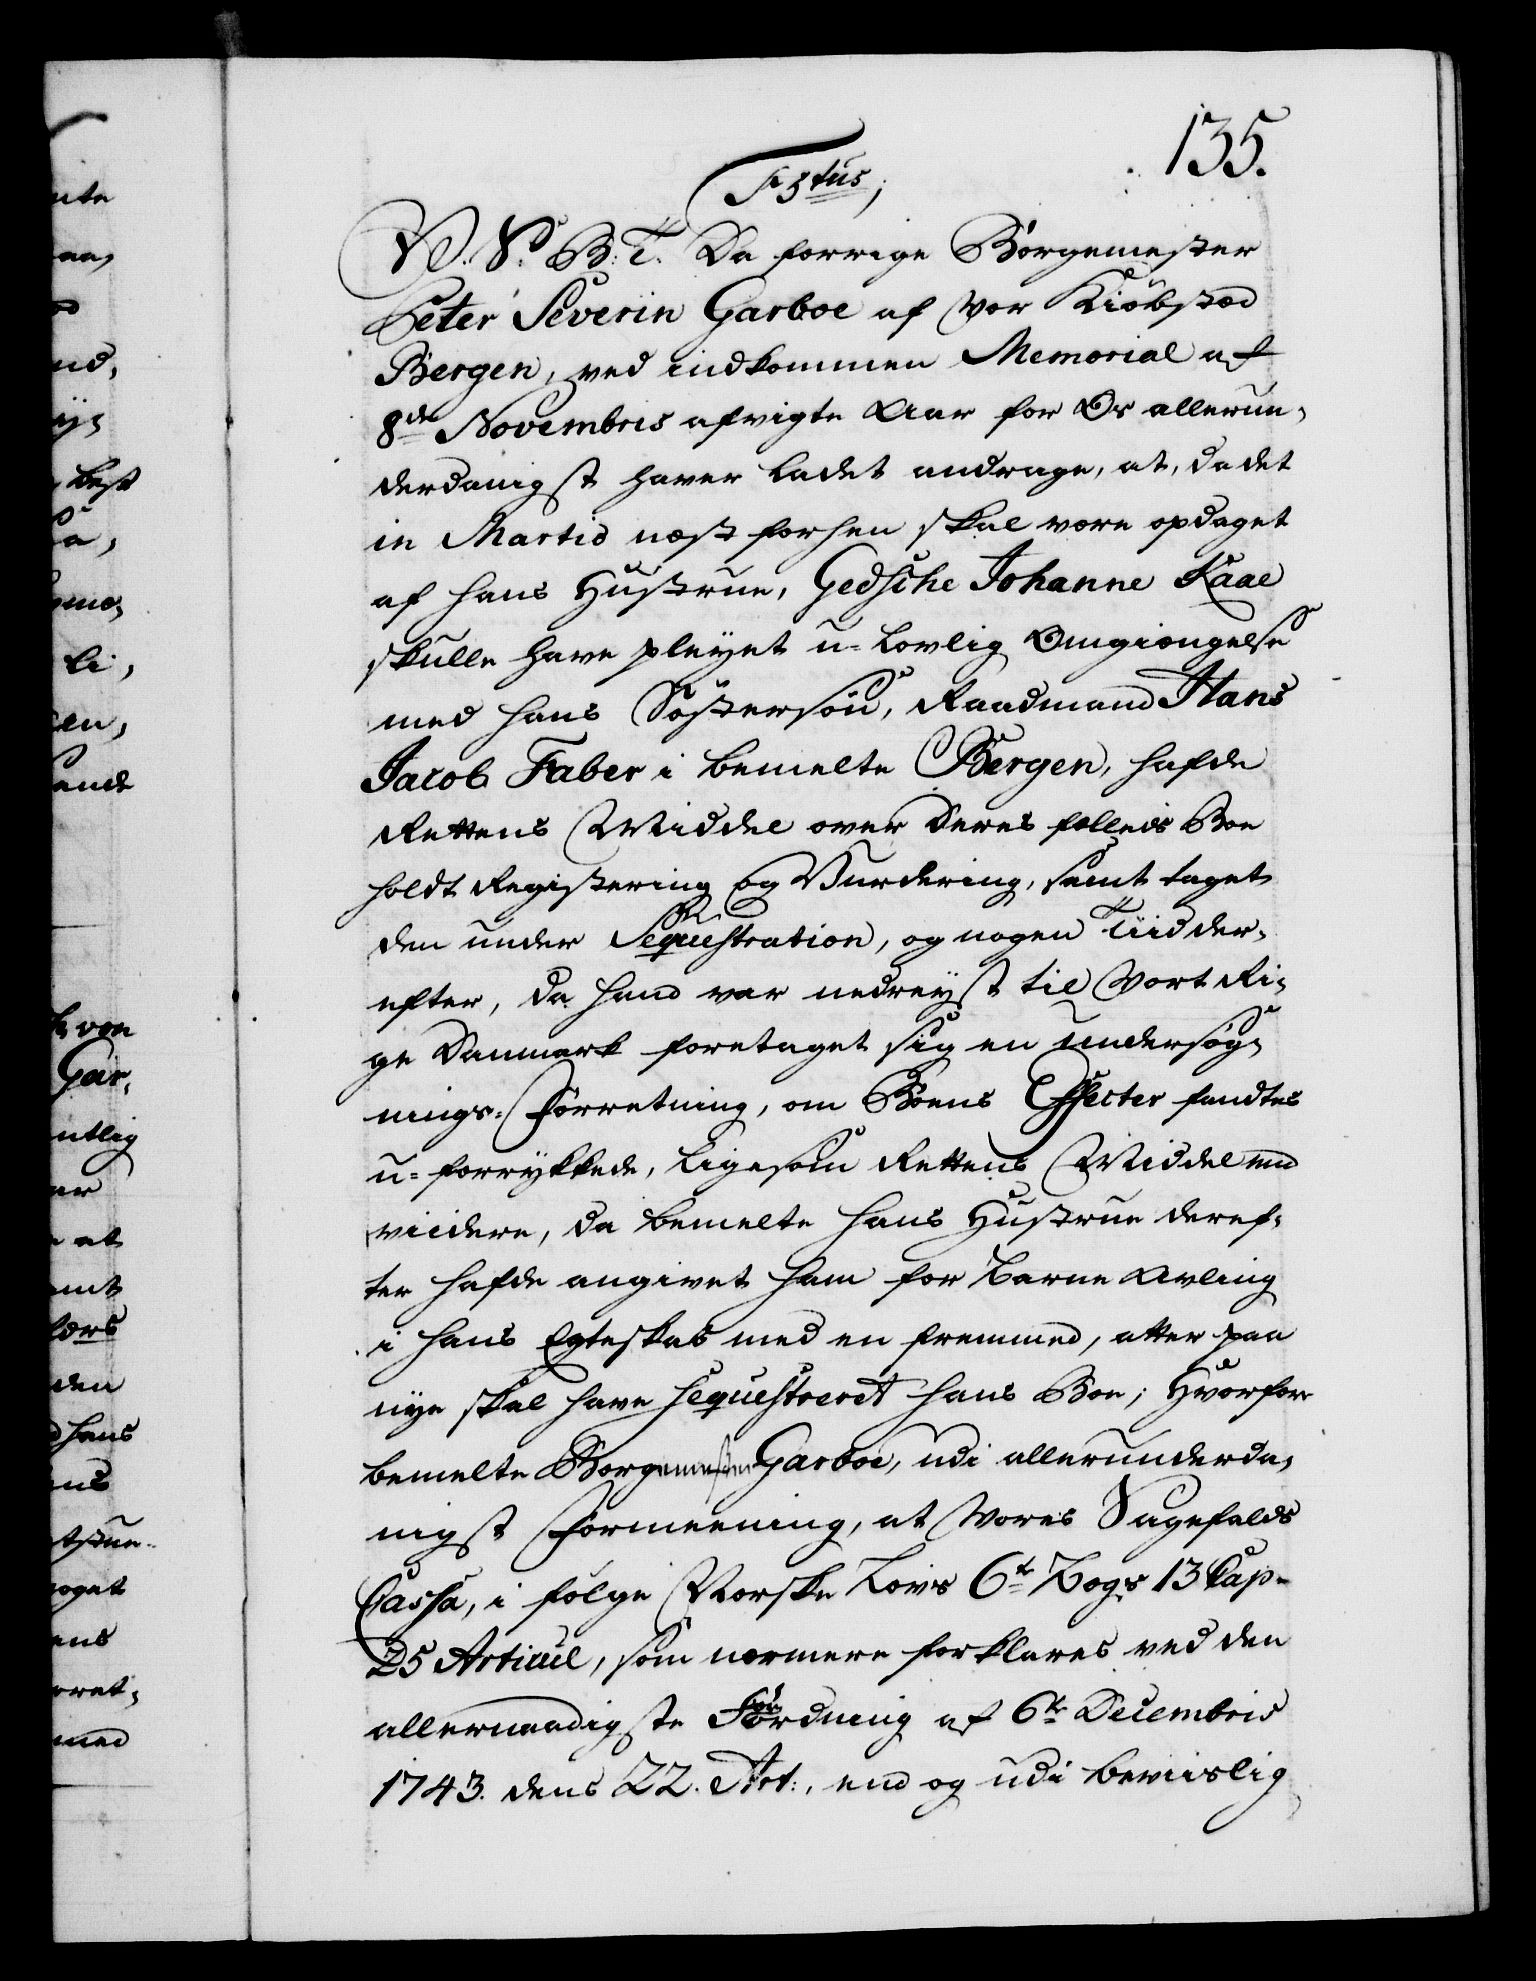 135.
F 5tus,
V. S. B. T. Da forrige Borgemester
Peter Severin Garboe af Vor Kiøbstæd
Bergen, ved indkommen Memorial af
8de Novembris afvigte Aar for Os allerun-
derdanigst haver ladet andrage, at, da det
in Martio næst forhen skal være opdaget
af hans Hustrue, Gedsche Johanne Kaae
skulle have pleyet u-lovlig Omgiengelse
med hans Søstersøn, Raadmand Hans
Jacob Faber i bemelte Bergen, hafde
Rettens Middel over Deres fælleds Boe
holdt Registering og Vurdering, samt taget
den under Sequestration, og nogen Tiid der-
efter, da hand var nedreyst til Vort Ri-
ge Danmark foretaget sig en undersøg-
nings-Forretning, om Boens Effecter fandtes
u-forrykkede, ligesom Rettens Middel end
viidere, da bemelte hans Hustrue deref-
ter hafde angivet ham for Barne Avling
i hans Egteskab med en fremmed, atter paa
nye skal have sequestreret hans Boe; Hvorfor
bemelte Borgemester Garboe, udi allerunderda-
nigst Formeening, at Vores Sagefalds
Cassa, i følge Norske Lovs 6te Bogs 13 Cap.
25 Articul, som nærmere forklares ved den
allernaadigste Forordning af 6te Decembris
1743. dens 22. Art:, end og udi beviislig
nte
aa,
nd,
best
li,
en,
ende
Gar,
ntlig
er
at
amt
den
hans
ens
noget
ens
rret-
med